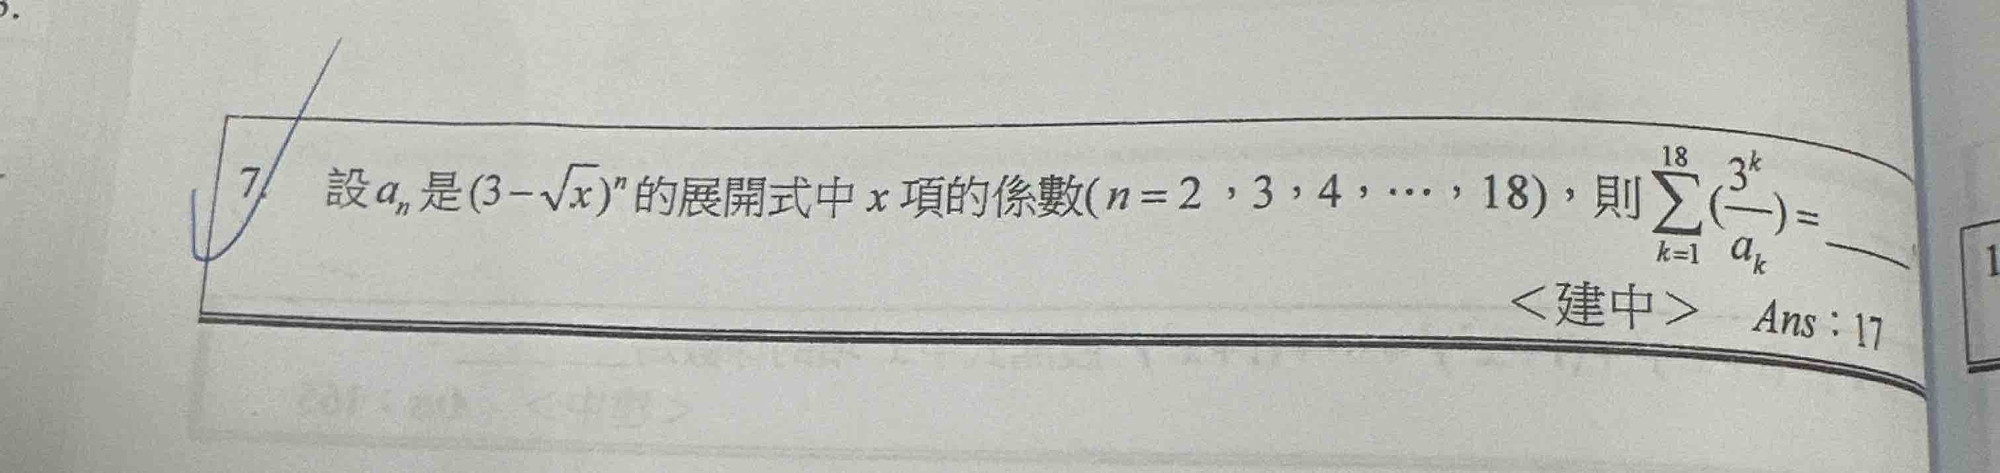 7. 設 aₙ 是 (3−√x)ⁿ 的展開式中 x 項的係數( n = 2 , 3 , 4 , ⋯ , 18) , 則 ∑_{k=1}^{18} (3ᵏ/aₖ) = ____
<建中> Ans : 17